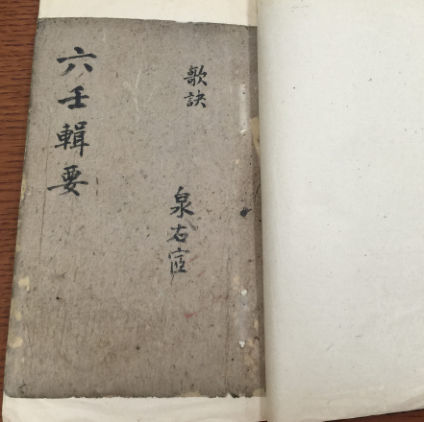 六壬輯要
歌訣
泉右宦